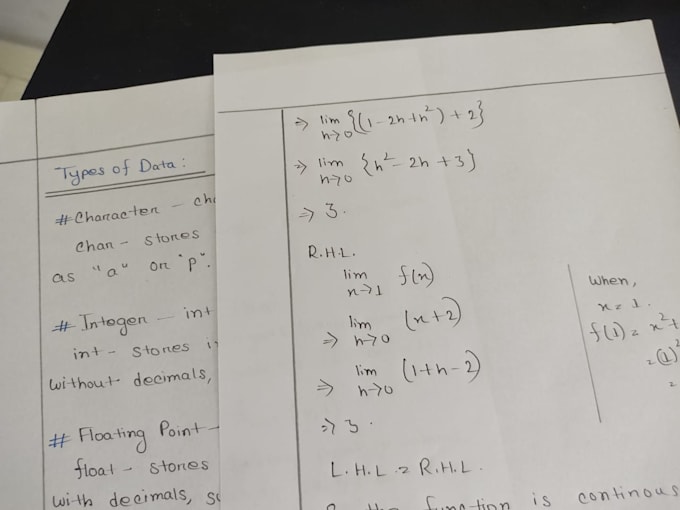 Types of Data :
# Character – cha
char – stores
as "a" or "p".
# Integer – int
int – stores i
without decimals,
# Floating Point –
float – stores
with decimals, su
⇒ lim h→0 {(1 - 2h + h²) + 2}
⇒ lim h→0 {h² - 2h + 3}
⇒ 3.
R.H.L.
lim x→1 f(x)
⇒ lim h→0 (x+2)
⇒ lim h→0 (1+h-2)
⇒ 3.
L.H.L = R.H.L.
the function is continous
When,
x = 1.
f(1) = x² +
= (1)²
=